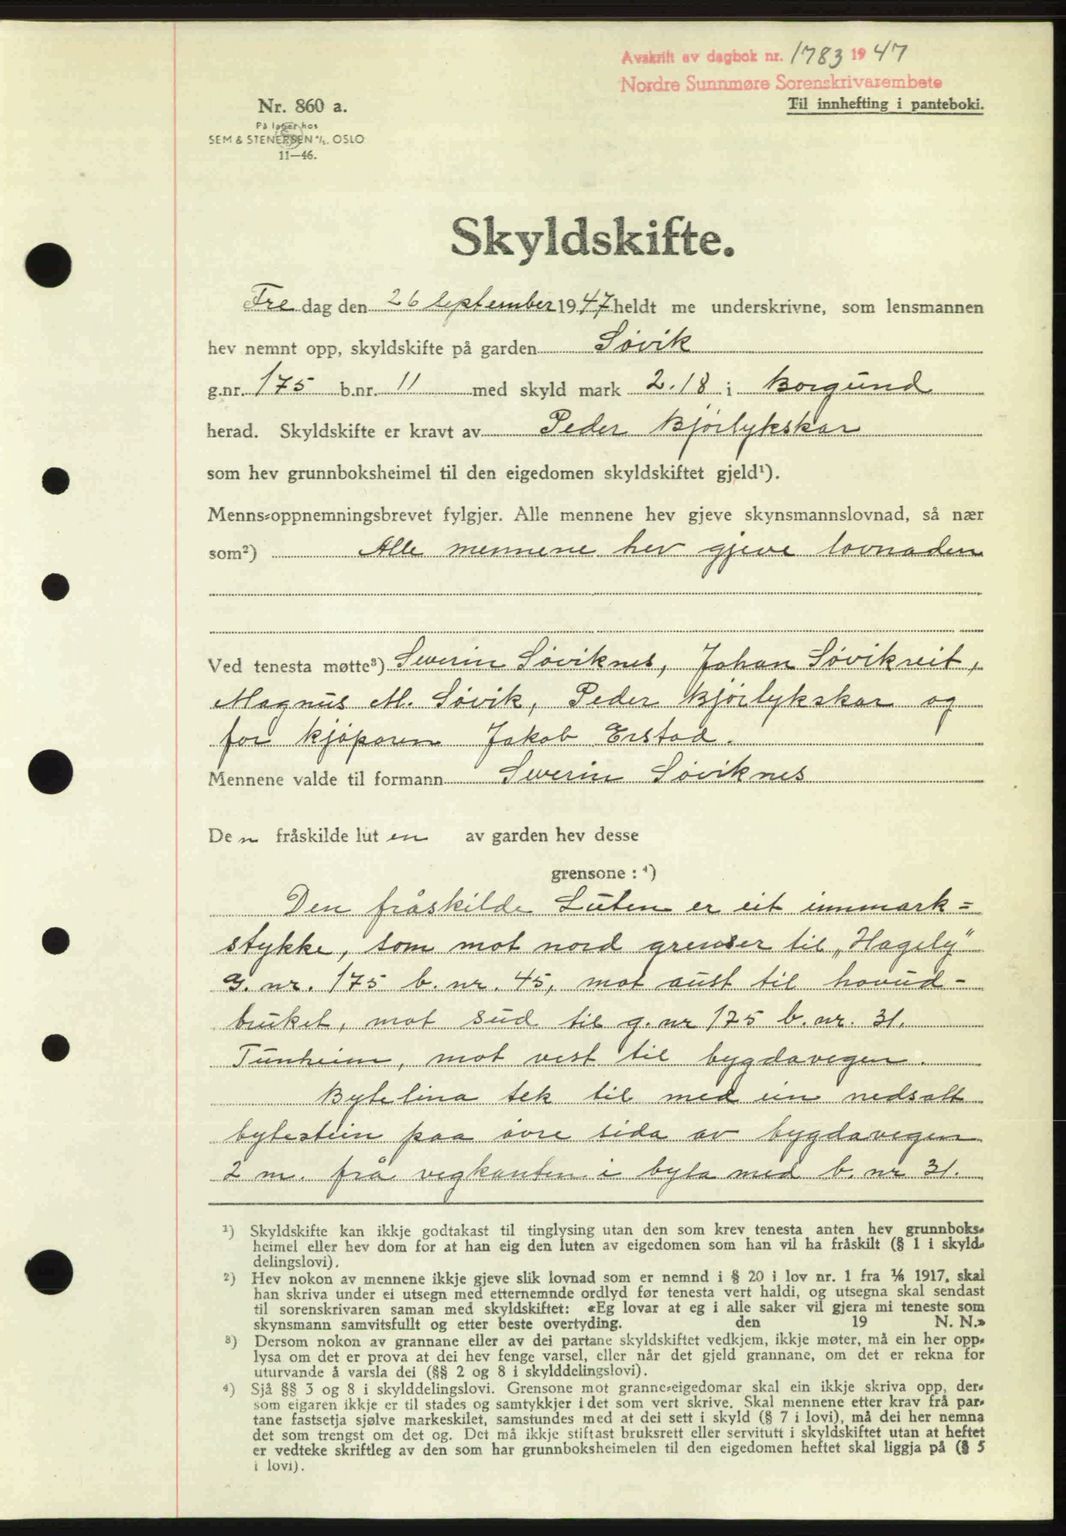 Avskrift av dagbok nr. 1783 1947
Nordre Sunnmøre Sorenskrivarembete
Til innhefting i panteboki.
Nr. 860 a.
På lager hos
SEM & STENERSEN A/S. OSLO
11—46.
Skyldskifte.
Fre dag den 26 september 1947 heldt me underskrivne, som lensmannen
hev nemnt opp, skyldskifte på garden Søvik
g.nr. 175 b.nr. 11 med skyld mark 2.18 i Borgund
herad. Skyldskifte er kravt av Peder Bjørlykskar
som hev grunnboksheimel til den eigedomen skyldskiftet gjeld¹).
Menns-oppnemningsbrevet fylgjer. Alle mennene hev gjeve skynsmannslovnad, så nær
som²) Alle mennene hev gjeve lovnaden
Ved tenesta møtte³) Severin Søviknes, Johan Søvikreit,
Magnus M. Søvik, Peder Bjørlykskar og
for kjøparen Jakob Erstad.
Mennene valde til formann Severin Søviknes
De n fråskilde lut en av garden hev desse
grensone : ⁴)
Den fråskilde Luten er eit innmark=
stykke, som mot nord grenser til „Hagely"
g. nr. 175 b. nr. 45, mot aust til hovud-
bruket, mot sud til g. nr 175 b. nr. 31.
Tunheim, mot vest til bygdavegen.
Bytelina tek til med ein nedsatt
bytestein paa øvre sida av bygdavegen
2 m. frå vegkanten i byta med b. nr 31.
¹) Skyldskifte kan ikkje godtakast til tinglysing utan den som krev tenesta anten hev grunnboks-
heimel eller hev dom for at han eig den luten av eigedomen som han vil ha fråskilt (§ 1 i skyld-
delingslovi).
²) Hev nokon av mennene ikkje gjeve slik lovnad som er nemnd i § 20 i lov nr. 1 fra 1/6 1917, skal
han skriva under ei utsegn med etternemnde ordlyd før tenesta vert haldi, og utsegna skal sendast
til sorenskrivaren saman med skyldskiftet: «Eg lovar at eg i alle saker vil gjera mi teneste som
skynsmann samvitsfullt og etter beste overtyding. den 19 N. N.»
³) Dersom nokon av grannane eller av dei partane skyldskiftet vedkjem, ikkje møter, må ein her opp-
lysa om det er prova at dei hev fenge varsel, eller når det gjeld grannane, om det er rekna for
uturvande å varsla dei (§§ 2 og 8 i skylddelingslovi).
⁴) Sjå §§ 3 og 8 i skylddelingslovi. Grensone mot granne-eigedomar skal ein ikkje skriva opp, der-
som eigaren ikkje er til stades og samtykkjer i det som vert skrive. Skal mennene etter krav frå par-
tane fastsetja sjølve markeskilet, samstundes med at dei sett i skyld (§ 7 i lovi), må dei her nemna
det som trengst om det og. Det må ikkje stiftast bruksrett eller servitutt i skyldskiftet utan at heftet
er vedteke skriftleg av den som har grunnboksheimelen til den eigedomen heftet skal liggja på (§ 5
i lovi).